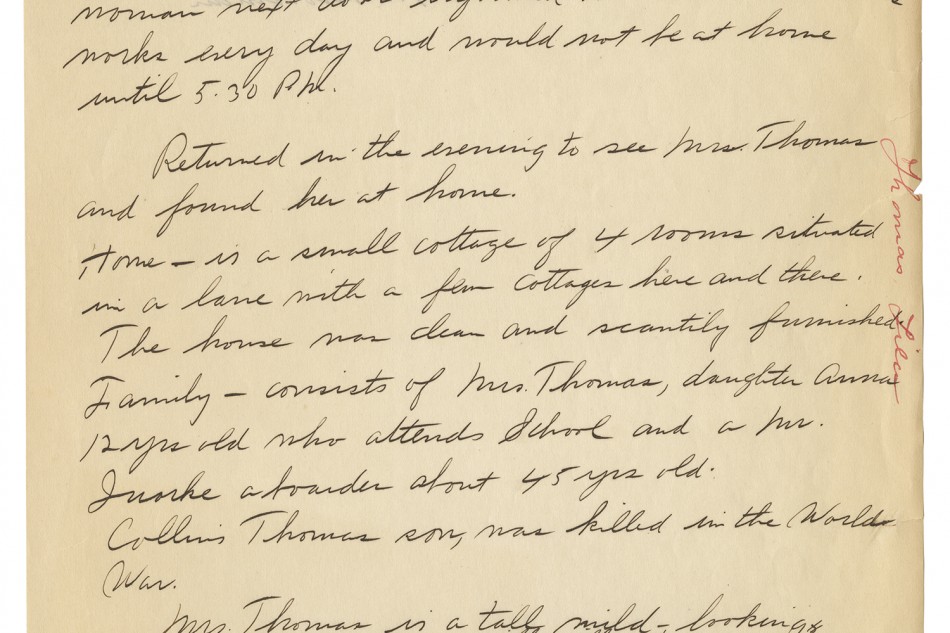 woman next door
works every day and would not be at home
until 5.30 P.M.
Returned in the evening to see Mrs. Thomas
and found her at home.
Home – is a small cottage of 4 rooms situated
in a lane with a few cottages here and there.
The house was clean and scantily furnished
Family – consists of Mrs. Thomas, daughter Anna
12 yrs old who attends School and a Mr.
a boarder about 45 yrs old.
Collins Thomas son, was killed in the World
War.
Mrs. Thomas is a tall, mild-looking
Thomas